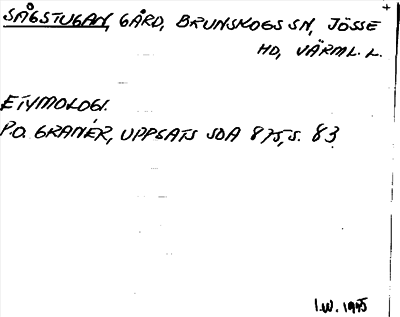 SÅGSTUGAN, GÅRD, BRUNSKOGS SN, JÖSSE
HD, VÄRML. L.
ETYMOLOGI.
P.O. GRANÉR, UPPSATS SDA 875, S. 83
I.W. 1945